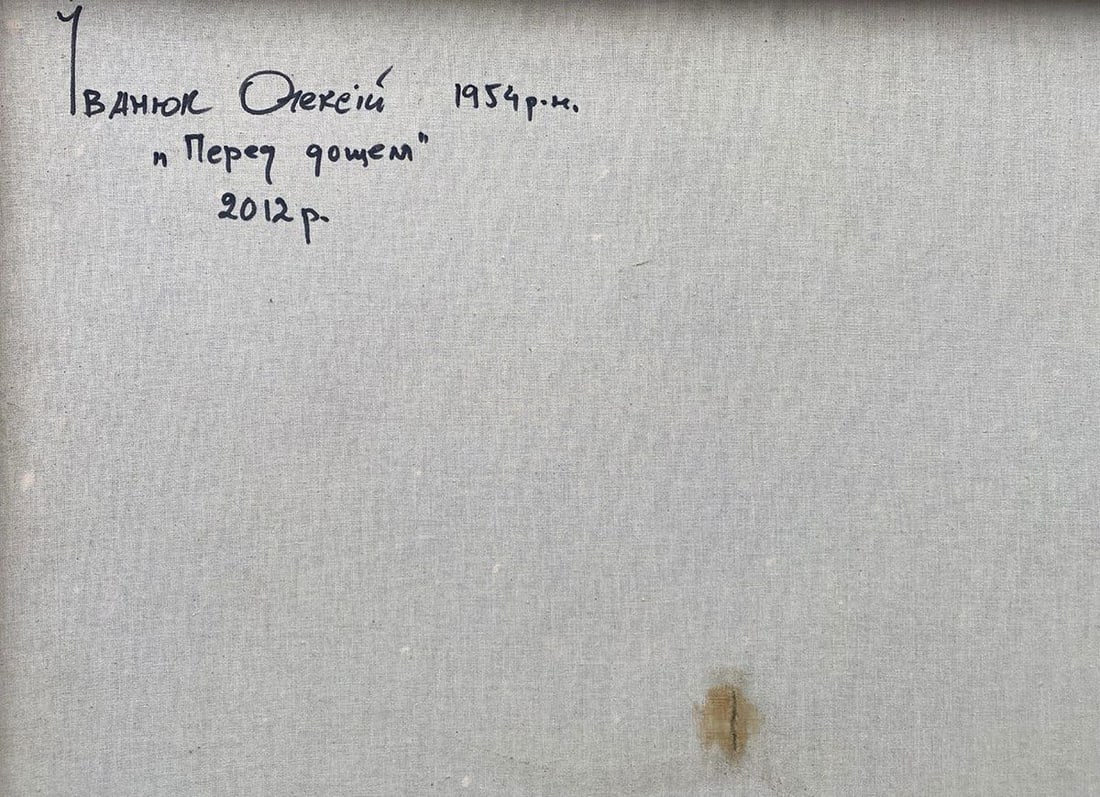 Іванюк Олексій 1954 р.н.
"Перед дощем"
2012 р.